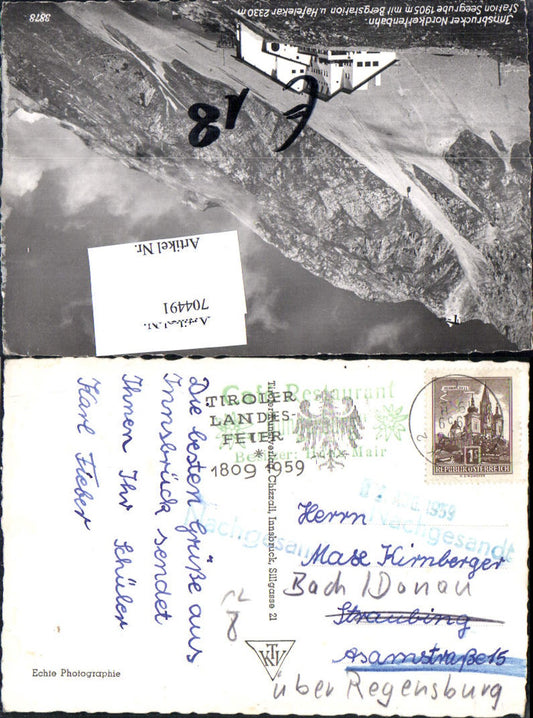 Innsbrucker Nordkettenbahn.
Station Seegrube 1905 m mit Bergstation u. Hafelekar 2330 m
3878
€ 18
Artikel Nr.
704491
Artikel Nr.
Die besten Grüße aus
Innsbruck sendet
Ihnen Ihr Schüler
Karl Fieber
Echte Photographie
Café Restaurant
Besitzer: Mair
TIROLER
LANDES-
FEIER
1809 1959
Chizzali, Innsbruck, Sillgasse 21
1S
REPUBLIK ÖSTERREICH
1959
Nachgesandt
Nachgesandt
Herrn
Max Kirnberger
Bach / Donau
Straubing
Asamstraße 15
über Regensburg